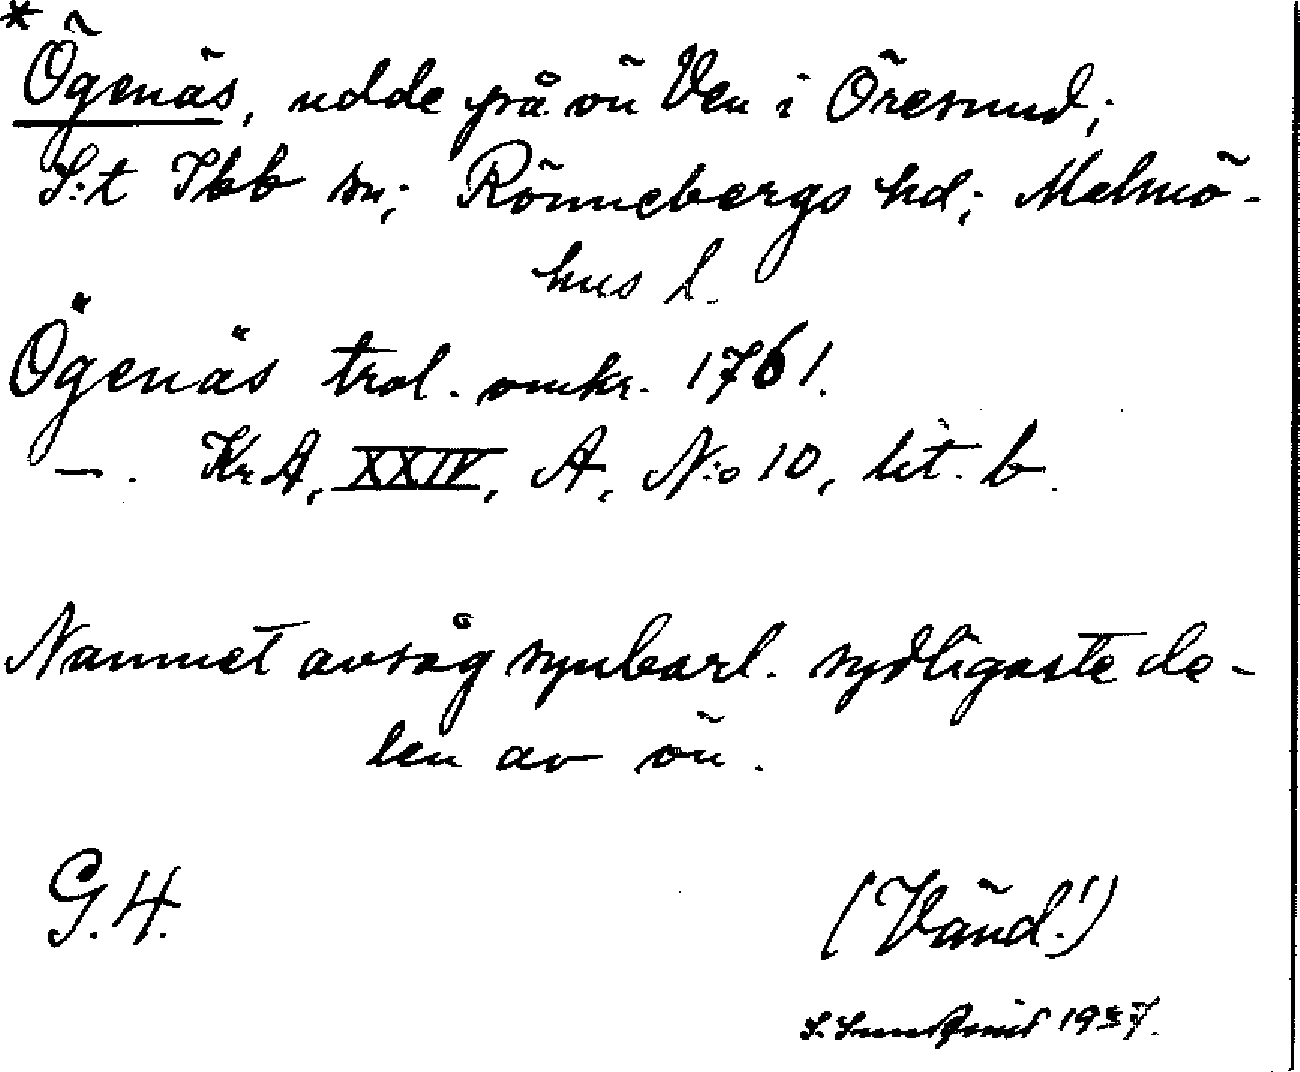 *
Ögenäs, udde på ön Ven i Öresund;
S:t Ibb sn; Rönnebergs hd; Malmö-
hus l.
Ögenäs trol. omkr. 1761.
—. KrA, XXIV, A, N:o 10, lit. b.
Namnet avsåg synbarl. sydligaste de-
len av ön.
G. 4.
(Vänd!)
S. 1937.